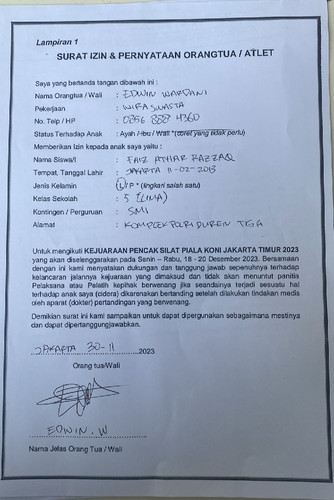 Lampiran 1
SURAT IZIN & PERNYATAAN ORANGTUA / ATLET
Saya yang bertanda tangan dibawah ini :
Nama Orangtua / Wali : EDWIN WARDANI
Pekerjaan : WIRASWASTA
No. Telp / HP : 0856 888 4360
Status Terhadap Anak : Ayah / Ibu / Wali *(coret yang tidak perlu)
Memberikan Izin kepada anak saya yaitu :
Nama Siswa/I : FAIZ ATHAR RAZZAQ
Tempat, Tanggal Lahir : JAKARTA 11-02-2013
Jenis Kelamin : L/ P * (lingkari salah satu)
Kelas Sekolah : 5 (LIMA)
Kontingen / Perguruan : SMI
Alamat : KOMPLEK POLRI DUREN TIGA
Untuk mengikuti KEJUARAAN PENCAK SILAT PIALA KONI JAKARTA TIMUR 2023
yang akan diselenggarakan pada Senin – Rabu, 18 - 20 Desember 2023. Bersamaan
dengan ini kami menyatakan dukungan dan tanggung jawab sepenuhnya terhadap
kelancaran jalannya kejuaraan yang dimaksud dan tidak akan menuntut panitia
Pelaksana atau Pelatih kepihak berwenang jika seandainya terjadi sesuatu hal
terhadap anak saya (cidera) dikarenakan bertanding setelah dilakukan tindakan medis
oleh aparat (dokter) pertandingan yang berwenang.
Demikian surat ini kami sampaikan untuk dapat dipergunakan sebagaimana mestinya
dan dapat dipertanggungjawabkan.
JAKARTA 30-11 2023
Orang tua/Wali
EDWIN. W
Nama Jelas Orang Tua / Wali